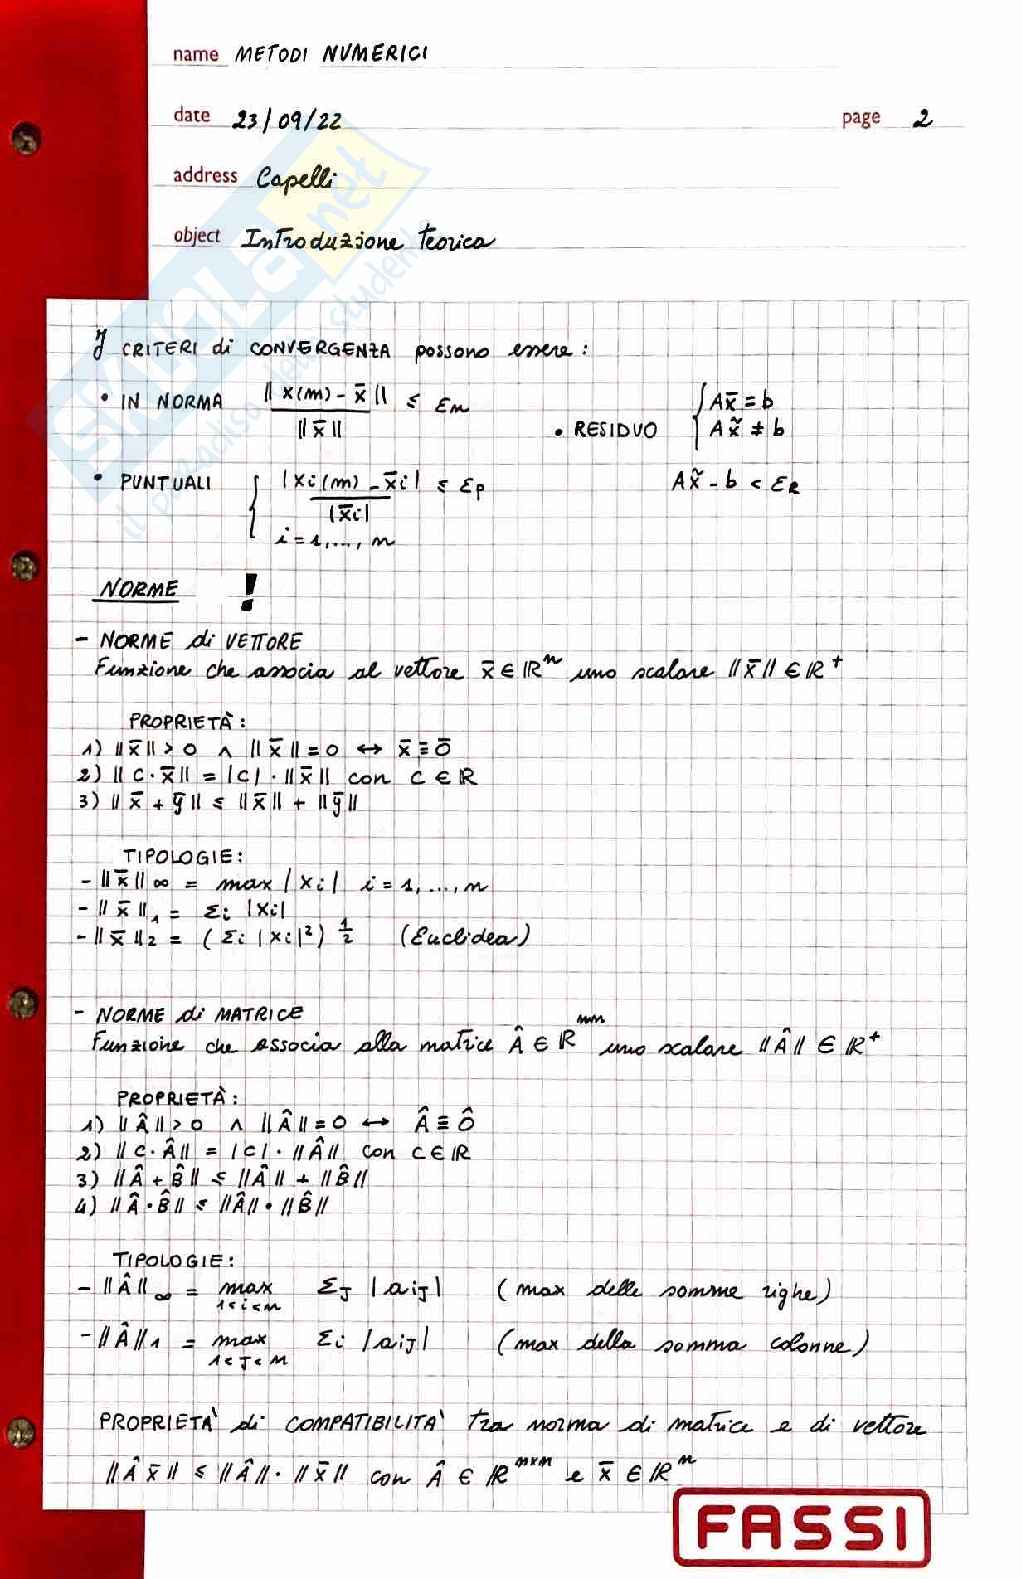 name METODI NUMERICI
date 23/09/22 page 2
address Capelli
object Introduzione teorica
SKUOLA.net
il paradiso dello studente
I CRITERI di CONVERGENZA possono essere:
• IN NORMA ||x(m) - x̄|| / ||x̄|| ≤ εm
• RESIDUO { Ax̄ = b
Ax̃ ≠ b
• PUNTUALI { |xi(m) - x̄i| / |x̄i| ≤ εp
i = 1, ..., n
Ax̃ - b < εR
NORME !
- NORME di VETTORE
Funzione che associa al vettore x̄ ∈ ℝⁿ uno scalare ||x̄|| ∈ ℝ⁺
PROPRIETÀ:
1) ||x̄|| > 0 ∧ ||x̄|| = 0 ↔ x̄ ≡ 0̄
2) ||c · x̄|| = |c| · ||x̄|| con c ∈ ℝ
3) ||x̄ + ȳ|| ≤ ||x̄|| + ||ȳ||
TIPOLOGIE:
- ||x̄||∞ = max |xi| i = 1, ..., n
- ||x̄||₁ = Σi |xi|
- ||x̄||₂ = (Σi |xi|²)^½ (Euclidea)
- NORME di MATRICE
Funzione che associa alla matrice Â ∈ ℝ uno scalare ||Â|| ∈ ℝ⁺
PROPRIETÀ:
1) ||Â|| > 0 ∧ ||Â|| = 0 ↔ Â ≡ Ô
2) ||c · Â|| = |c| · ||Â|| con c ∈ ℝ
3) ||Â + B̂|| ≤ ||Â|| + ||B̂||
4) ||Â · B̂|| ≤ ||Â|| · ||B̂||
TIPOLOGIE:
- ||Â||∞ = max Σj |aij| (max delle somme righe)
1<i<n
- ||Â||₁ = max Σi |aij| (max della somma colonne)
1<j<n
PROPRIETA' di COMPATIBILITA' tra norma di matrice e di vettore
||Âx̄|| ≤ ||Â|| · ||x̄|| con Â ∈ ℝⁿˣⁿ e x̄ ∈ ℝⁿ
FASSI